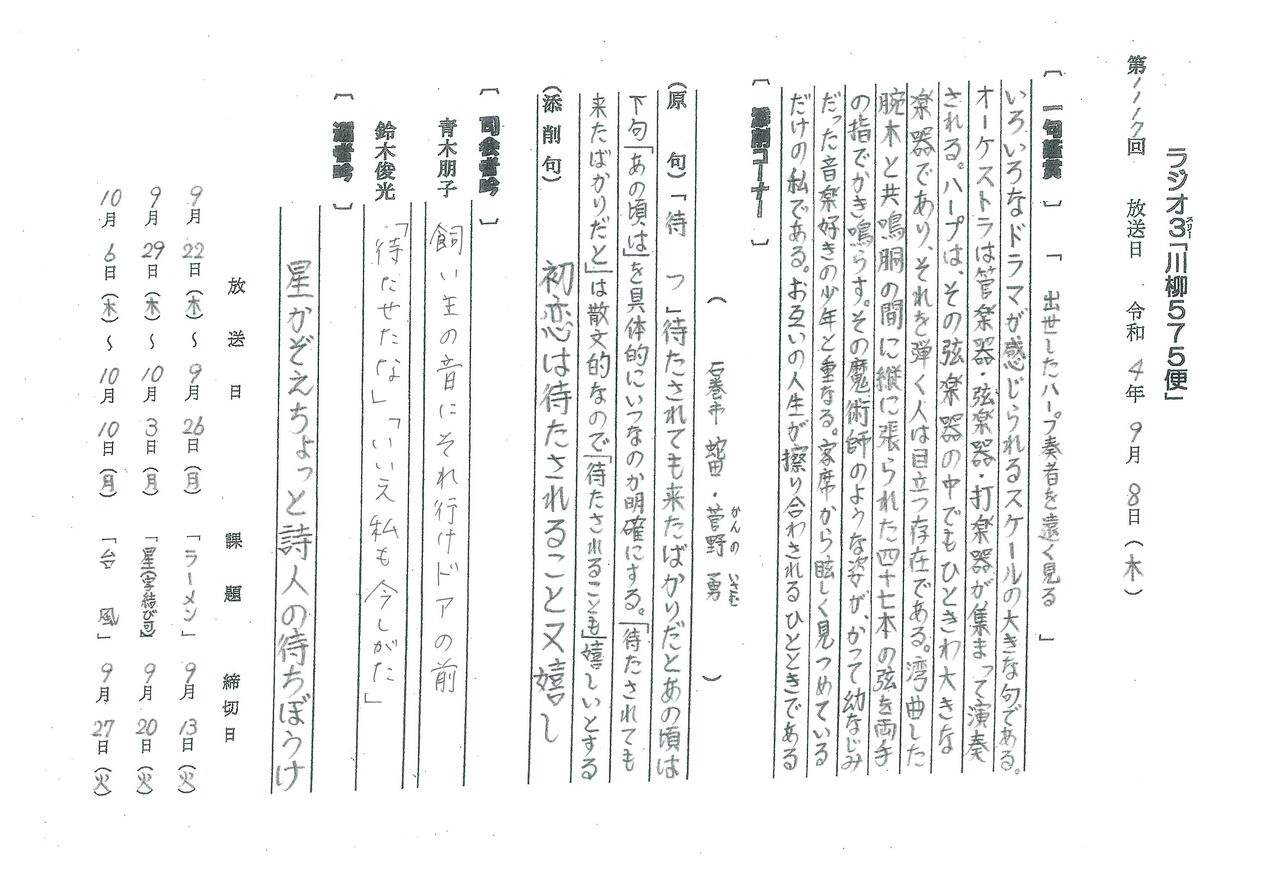 ラジオ3「川柳575便」
スリー
第1117回 放送日 令和4年9月8日(木)
〔一句鑑賞〕 「 出世したハープ奏者を遠く見る 」
いろいろなドラマが感じられるスケールの大きな句である。
オーケストラは管楽器・弦楽器・打楽器が集まって演奏
される。ハープは、その弦楽器の中でもひときわ大きな
楽器であり、それを弾く人は目立つ存在である。湾曲した
腕木と共鳴胴の間に縦に張られた四十七本の弦を両手
の指でかき鳴らす。その魔術師のような姿が、かつて幼なじみ
だった音楽好きの少年と重なる。客席から眩しく見つめている
だけの私である。お互いの人生が擦り合わされるひとときである
〔添削コーナー〕
( 石巻市 蛇田・菅野 勇 )
かんの いさむ
(原 句)「待 つ」待たされても来たばかりだとあの頃は
下句「あの頃は」を具体的にいつなのか明確にする。「待たされても
来たばかりだと」は散文的なので「待たされることも」嬉しいとする
(添削句) 初恋は待たされること又嬉し
〔司会者吟〕
青木朋子 飼い主の音にそれ行けドアの前
鈴木俊光 「待たせたな」「いいえ私も今しがた」
〔選者吟〕
星かぞえちょっと詩人の待ちぼうけ
放送日 課題 締切日
9月22日(木)～9月26日(月) 「ラーメン」 9月13日(火)
9月29日(木)～10月3日(月) 「星(字結び可)」 9月20日(火)
10月6日(木)～10月10日(月) 「台 風」 9月27日(火)